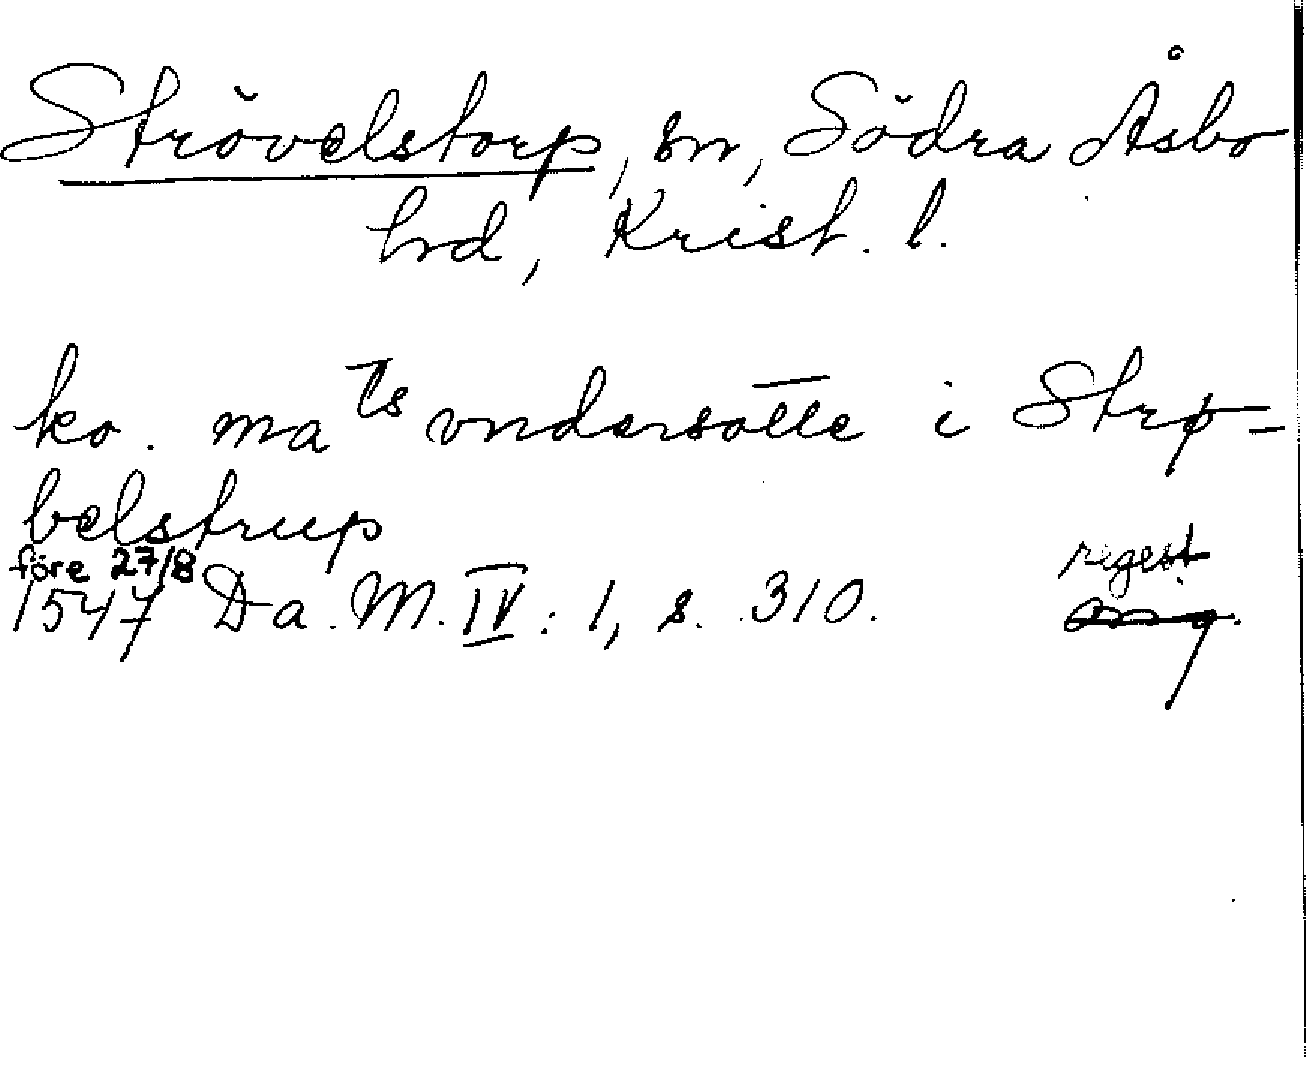 Strövelstorp, sn, Södra Åsbo
hrd, Krist. l.
ko. ma ts vndersotte i Strø-
belstrup
före 27/8
1547 Da. M. IV: 1, s. 310.
regest